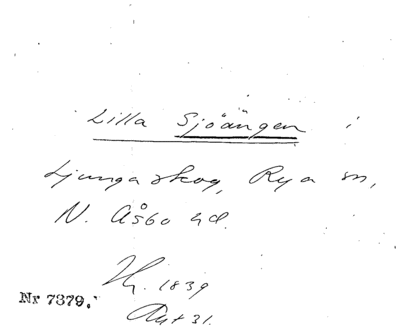 Lilla Sjöängen i
Ljungaskog, Rya sn,
N. Åsbo hd.
Hy. 1839
Akt 31.
Nr 7379.